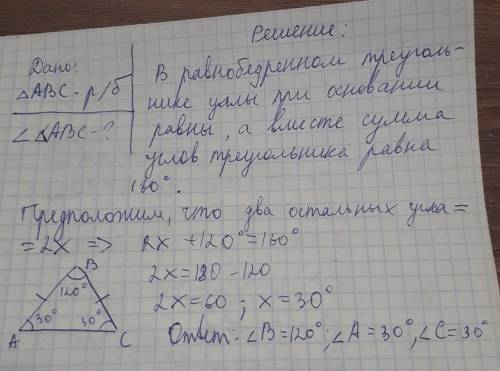 Решение:
Дано:
△ABC - р/б
∠△ABC-?
В равнобедренном треуголь-
нике углы при основании
равны, а вместе сумма
углов треугольника равна
180°.
Предположим, что два остальных угла =
= 2x => 2x + 120° = 180°
2x = 180 - 120
2x = 60 ; x = 30°
Ответ: ∠B = 120° ; ∠A = 30°, ∠C = 30°
B
120°
30° 30°
A C